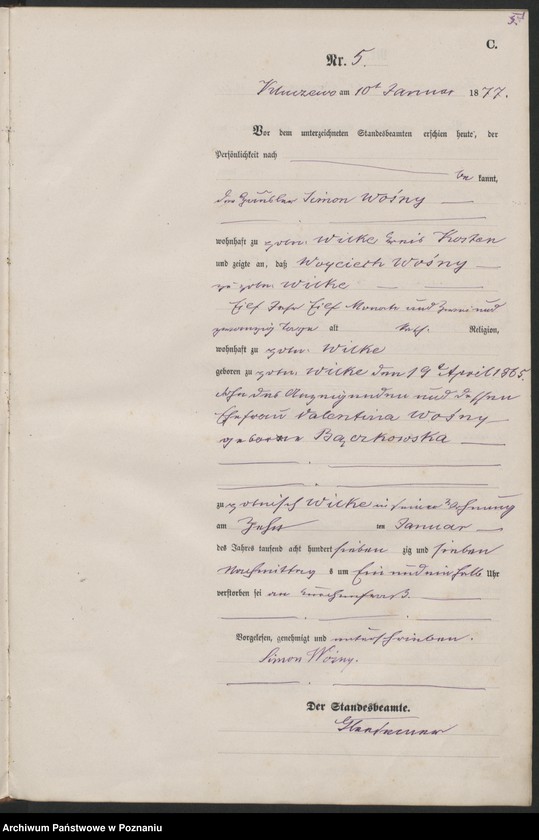 5.
C.
Nr. 5.
am 10t Januar 1877.
Vor dem unterzeichneten Standesbeamten erschien heute, der
Persönlichkeit nach
be kannt,
der Häusler Simon Wośny
wohnhaft zu poln: Wilke Kreis Kosten
und zeigte an, daß Woyciech Wośny
zu poln: Wilke
Eilf Jahr Eilf Monate und zwei und
zwanzig Tage alt kath. Religion,
wohnhaft zu poln: Wilke
geboren zu poln: Wilke den 19t April 1865.
Sohn des Anzeigenden und dessen
Ehefrau Valentina Wośny
geborne Bączkowska
zu polnisch Wilke in seiner Wohnung
am Zehn ten Januar
des Jahres tausend acht hundert sieben zig und sieben
Nachmittag s um Ein und ein halb Uhr
verstorben sei an
Vorgelesen, genehmigt und unterschrieben.
Simon Wośny.
Der Standesbeamte.
Archiwum Państwowe w Poznaniu